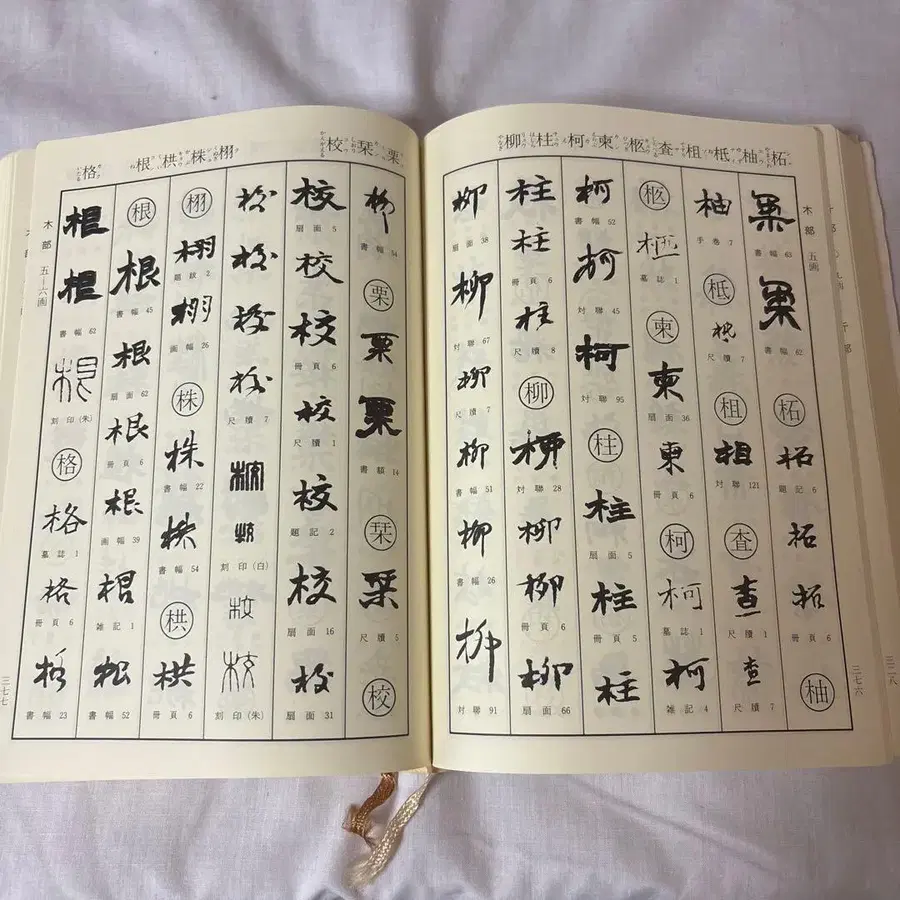 柘柚柢柤査柩柬柯柱柳
木部 五画
三七六
書幅 63
書幅 62
柘
柘 題記 6
柘
柘 冊頁 6
柚
柚 手巻 7
柢
柢 尺牘 7
柤
柤 対聯 121
査
査 尺牘 1
査 尺牘 7
柩
柩 墓誌 1
柬
柬 扇面 36
柬 冊頁 6
柯
柯 墓誌 1
柯 雑記 4
柯 書幅 52
柯 対聯 45
柯 対聯 95
柱
柱 扇面 5
柱 冊頁 5
柱
柱
柱 冊頁 6
柱 尺牘 8
柳
柳 対聯 28
柳
柳 冊頁 6
柳 扇面 66
柳 扇面 38
柳 対聯 67
柳 尺牘 7
柳 書幅 51
柳 書幅 26
柳 対聯 91
栗栞校栩株栱根格
柳 書幅 54
栗
栗
栗 書額 14
栞
栞 尺牘 5
校
校 扇面 5
校
校 冊頁 6
校 尺牘 1
校 題記 2
校 扇面 16
校 扇面 31
校
校
校
校 尺牘 7
校
校 刻印(白)
校
校 刻印(朱)
栩
栩 題跋 2
栩 画幅 26
株
株 書幅 22
株 書幅 54
栱
栱 冊頁 6
根
根 書幅 45
根 扇面 62
根 冊頁 6
根 画幅 39
根 雑記 1
根 書幅 52
根
根 書幅 62
根 刻印(朱)
格
格 墓誌 1
格 冊頁 6
格 書幅 23
木部 五―六画
三七七